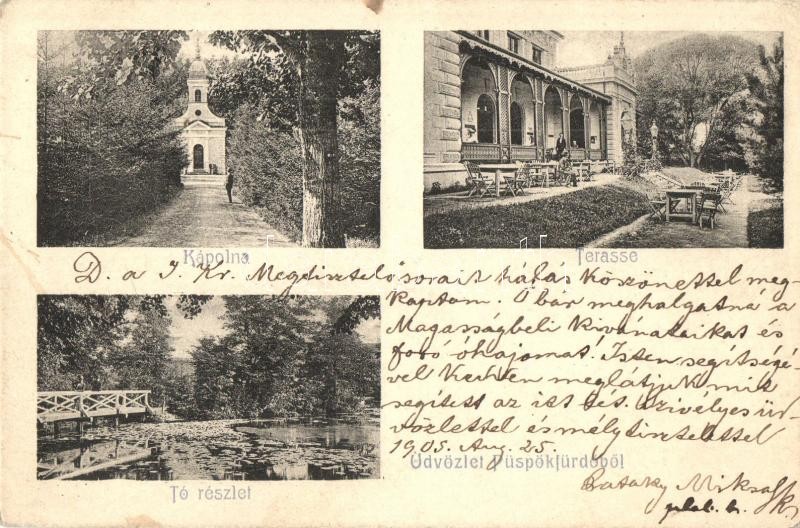 Kápolna
Terasse
D. a J. Kr. Megtisztelő sorait hálás köszönettel meg-
kaptam. Ó bár meghalgatná a
Magasságbeli kivánataikat és
forró óhajomat! Isten segitségé-
vel Kedden meglátjuk mit
segitett az itt lét. Szivélyes üd-
vözlettel és mély tisztelettel
1905. Aug. 25.
Üdvözlet Püspökfürdőből
Tó részlet
Miksa